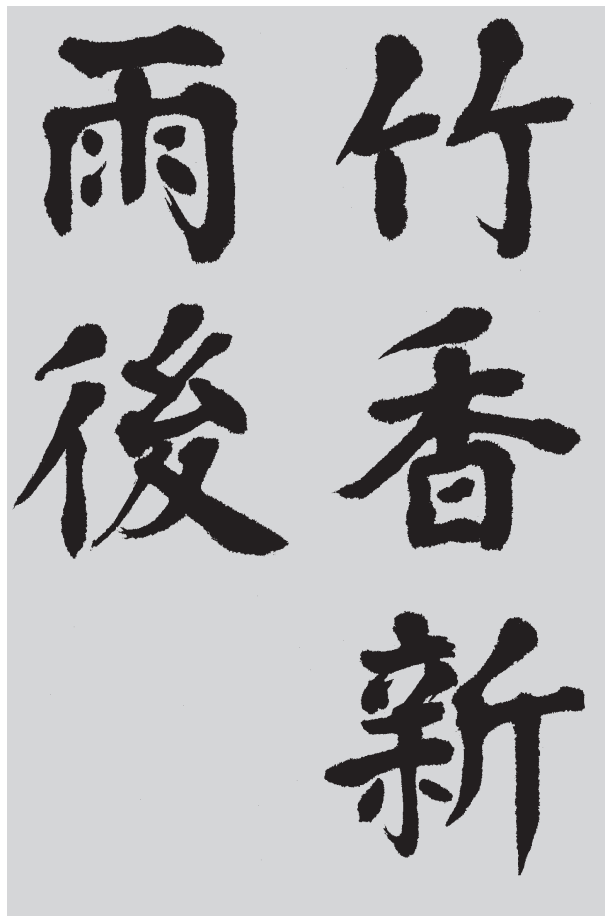 竹香新
雨後